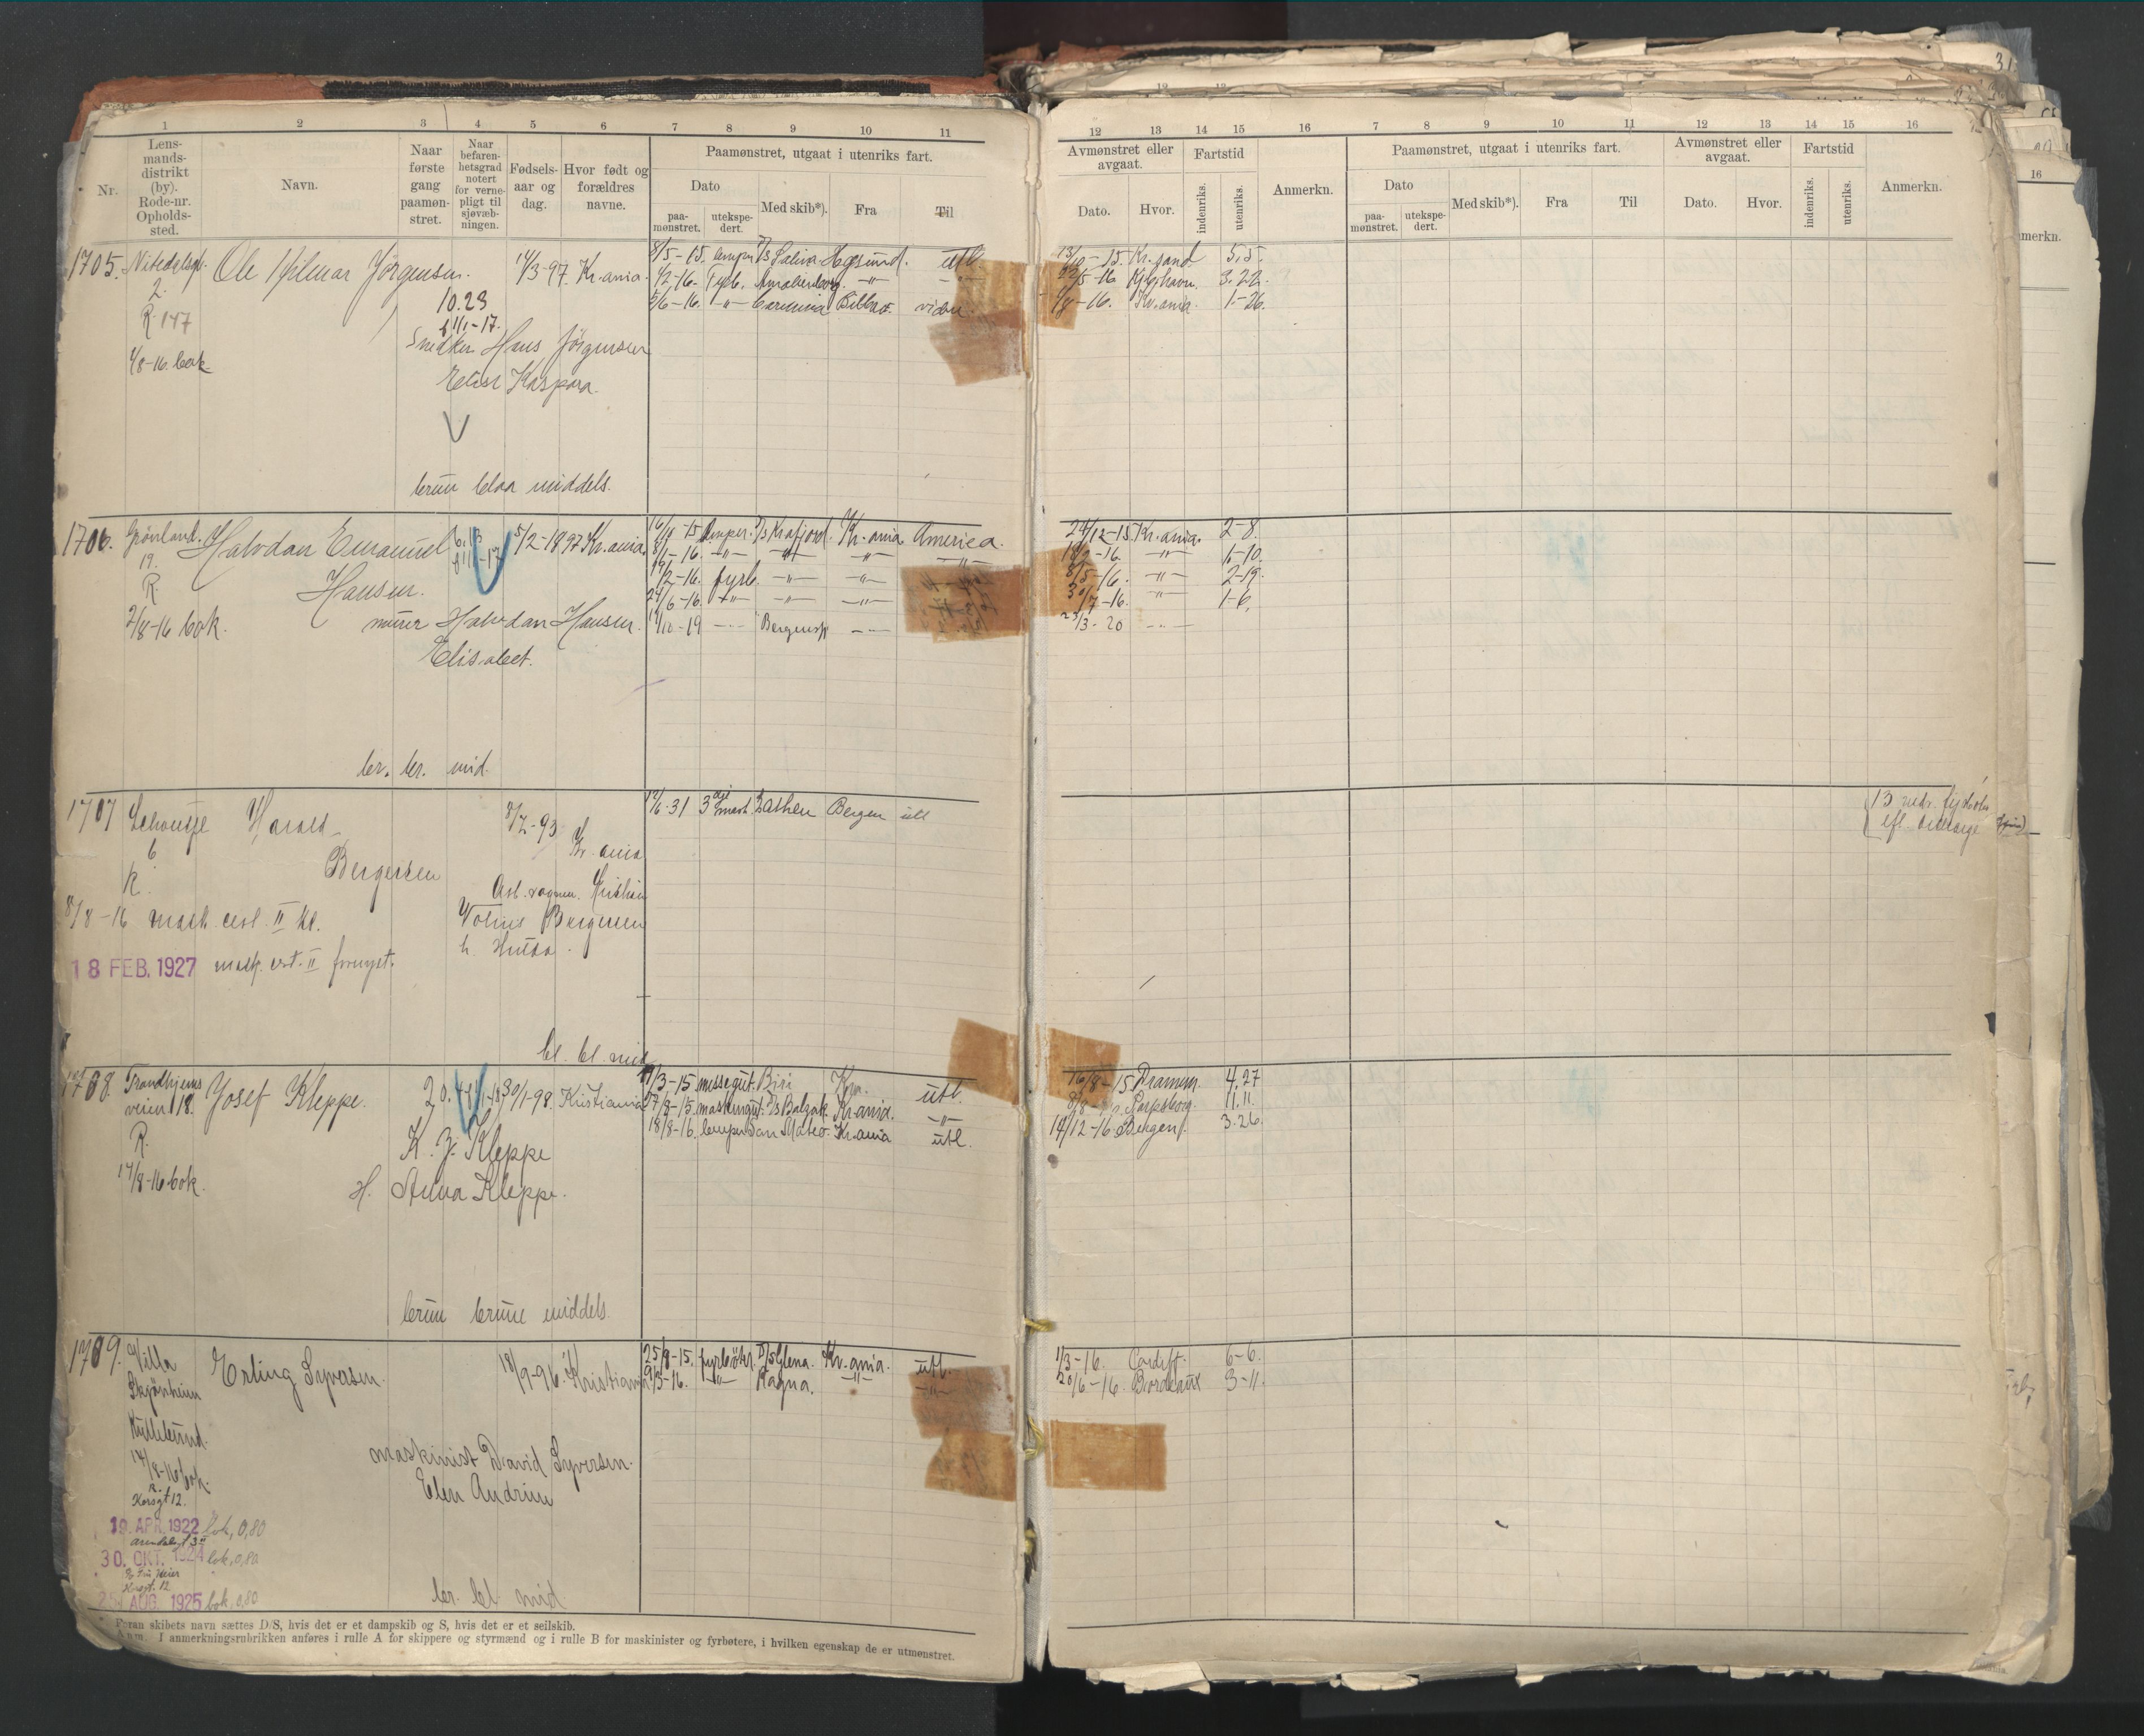 1 2 3 4 5 6 7 8 9 10 11
Nr.
Lens-
mands-
distrikt
(by).
Rode-nr.
Opholds-
sted.
Navn.
Naar
første
gang
paamøn-
stret.
Naar
befaren-
hetsgrad
notert
for verne-
pligt til
sjøvæb-
ningen.
Fødsels-
aar og
dag.
Hvor født og
forældres
navne.
Paamønstret, utgaat i utenriks fart.
Dato
paa-
mønstret.
utekspe-
dert.
Med skib*).
Fra
Til
1705. Ole Hilmar Jörgensen. 14/3-97. Kr.ania.
2.
R. 147
10.23
f 1/1-17.
Snedker Hans Jörgensen
Kaspara.
4/8-16. bok
8/5-15. D/s Haugesund. utl.
1/2-16. Fyrb. Amalienborg. -"-
5/6-16. -"- Bilbao. videre.
brun blaa middels.
1706. Grønland. Halvdan Emanuel 6.13 5/2-1897 Kr.ania.
19. f 1/1-17
R. Hansen.
2/8-16 bok. murer Halvdan Hansen.
Elisabet.
16/11-15 D/s Krafjord. Kr.ania America.
8/1-16. -"- -"- -"- -"-
/2-16. fyrb. -"- -"-
24/6-16. -"- -"- -"-
/10-19 -"- Bergensfj -"-
br. br. mid.
1707 Harald 8/2-93 Kr.ania
6
R. Bergersen
Kristian
Bergersen
h. Hulda.
8/8-16 mask. cert. II kl.
18 FEB. 1927 mask. cert. II fornyet.
/6-31 3die mask. Bergen utl
bl. bl. mid
1708. Trondhjems Josef Kleppe. 20. 30/1-98. Kristiania
veien 18.
R. K. J. Kleppe
17/8-16 bok. H. Anna Kleppe.
/3-15 messegut. Biri utl.
27/8-15. maskingut. D/s Balzak Kr.ania. -"-
18/8-16. San Mateo. Kr.ania utl.
brun brune middels.
1709. Villa Erling Syversen. 18/9-96. Kristiania
Skjönheim
14/8-16 bok.
R.
Korsgt 12.
maskinist David Syversen.
Elen Andrine
25/8-15. fyrböter. D/S Glena. Kr.ania. utl.
9/3-16. -"- Ragna. -"- -"-
19. APR. 1922 bok, 0,80
30. OKT. 1924 bok, 0,80
Korsgt. 12
25 AUG. 1925 bok, 0,80
br. bl. mid
Foran skibets navn sættes D/S, hvis det er et dampskib og S, hvis det er et seilskib.
Anm. I anmerkningsrubrikken anføres i rulle A for skippere og styrmænd og i rulle B for maskinister og fyrbøtere, i hvilken egenskap de er utmønstret.
12 13 14 15 16 7 8 9 10 11 12 13 14 15 16
Avmønstret eller
avgaat.
Dato. Hvor.
Fartstid
indenriks.
utenriks.
Anmerkn.
Paamønstret, utgaat i utenriks fart.
Dato
paa-
mønstret.
utekspe-
dert.
Med skib*).
Fra
Til
Avmønstret eller
avgaat.
Dato. Hvor.
Fartstid
indenriks.
utenriks.
Anmerkn.
16
merkn.
13/10-15. Kr.sand. 5.5.
22/5-16 Kjb.havn. 3.22.
-16. Kr.ania. 1.-26.
24/12-15. Kr.ania. 2-8.
-16. -"- 1-10.
8/5-16. -"- 2-19.
30/7-16. -"- 1-6.
23/3-20 -"-
16/8-15 Dramm. 4.27
Sarpsborg. 11.11.
14/12-16. Bergen. 3.26.
1/3-16. Cardiff. 6-6.
20/6-16. Bordeaux 3-11.